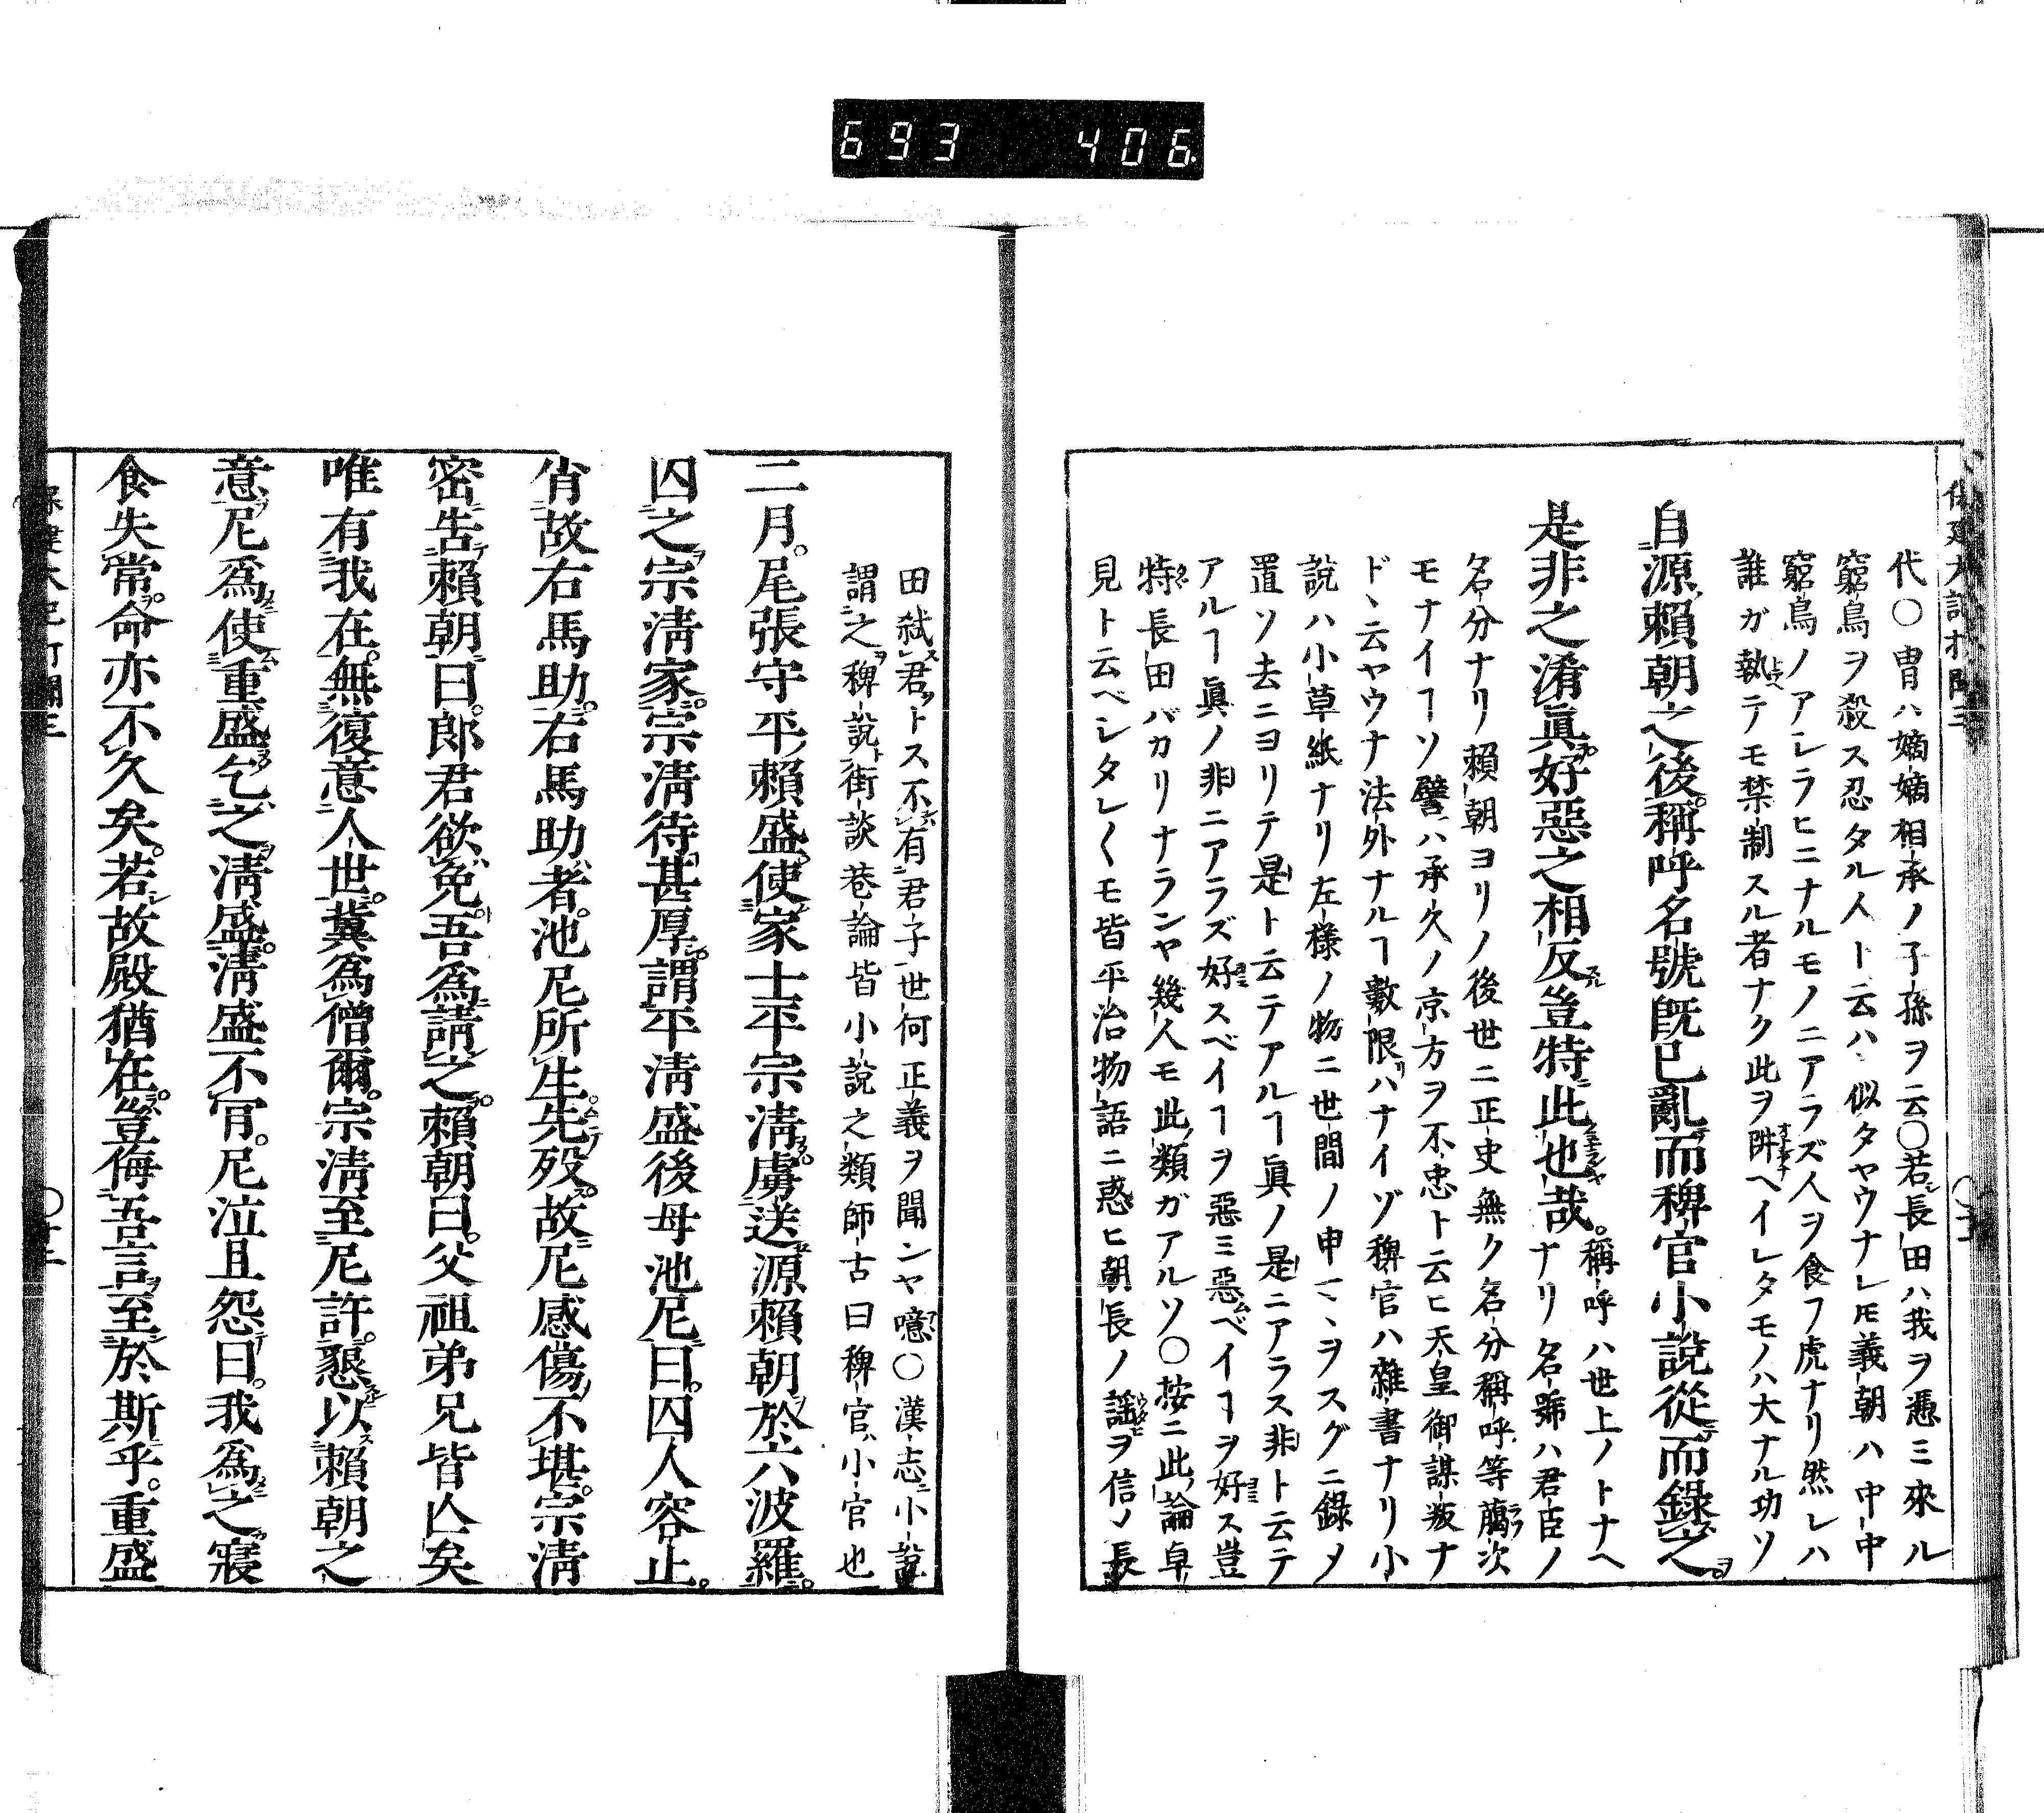 693 406
代○胄ハ嫡嫡相承ノ子孫ヲ云○若長田ハ我ヲ憑ミ來ル
窮鳥ヲ殺ス忍タル人ト云ハヽ似タヤウナレ𪜈義朝ハ中中
窮鳥ノアシラヒニナルモノニアラズ人ヲ食フ虎ナリ然レハ
誰ガ執テモ禁制スル者ナク此ヲ阱ヘイレタモノハ大ナル功ソ
自源賴朝之後。稱呼名號既已亂而稗官小說從而錄之。
是非之淆眞好惡之相反豈特此也哉。稱呼ハ世上ノトナヘ
ナリ名號ハ君臣ノ
名分ナリ賴朝ヨリノ後世ニ正史無ク名分稱呼等﨟次
モナイヿソ譬ハ承久ノ京方ヲ不忠ト云ヒ天皇御謀叛ナ
ドヽ云ヤウナ法外ナルヿ數限ハナイゾ稗官ハ雜書ナリ小
說ハ小草紙ナリ左樣ノ物ニ世間ノ申マヽヲスグニ錄メ
置ソ去ニヨリテ是ト云テアルヿ眞ノ是ニアラス非ト云テ
アルヿ眞ノ非ニアラズ好スベイヿヲ惡ミ惡ムベイヿヲ好ス豈
特長田バカリナランヤ幾人モ此類ガアルソ○按ニ此論卓
見ト云ベシタレ〱モ皆平治物語ニ惑ヒ朝長ノ謡ヲ信ノ長
田弑君ヲトス不有君子世何正義ヲ聞ンヤ噫○漢志小說
謂之稗說街談巷論皆小說之類師古曰稗官小官也
二月。尾張守平賴盛使家士平宗淸虜送源賴朝於六波羅。
囚之宗淸家。宗淸待甚厚。謂平淸盛後母池尼曰。囚人容止。
肖故右馬助。右馬助者。池尼所生。先歿。故尼感傷不堪。宗淸
密告賴朝曰。郎君欲免。吾爲請之。賴朝曰。父祖弟兄皆亾矣
唯有我在。無復意人世。冀爲僧爾。宗淸至尼許。懇以賴朝之
意。尼爲使重盛乞之淸盛。淸盛不肎。尼泣且怨曰。我爲之寢
食失常。命亦不久矣。若故殿猶在。豈侮吾言至於斯乎。重盛